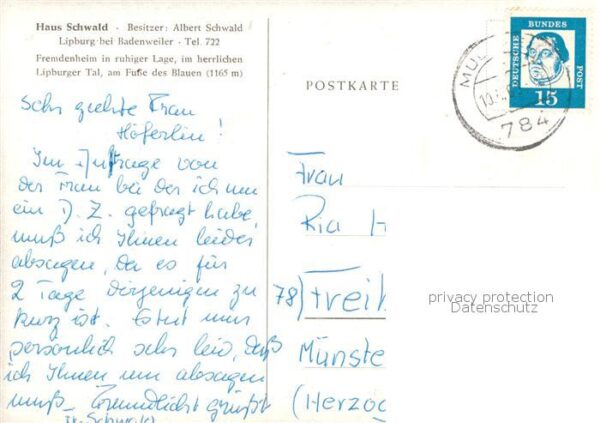 Haus Schwald - Besitzer: Albert Schwald
Lipburg bei Badenweiler - Tel. 722
Fremdenheim in ruhiger Lage, im herrlichen
Lipburger Tal, am Fuße des Blauen (1165 m)
Sehr geehrte Frau
Höferlin!
Im Auftrage von
der Frau bei der ich um
ein D. Z. gefragt habe,
muß ich Ihnen leider
absagen, da es für
2 Tage derjenigen zu
kurz ist. Es tut mir
persönlich sehr leid, daß
ich Ihnen nun absagen
muß. Freundlichst grüßt
Fr. Schwald
POSTKARTE
DEUTSCHE BUNDES POST
15
MÜL
10.
784
Frau
Ria H
78) Freib
Münste
(Herzog
privacy protection
Datenschutz